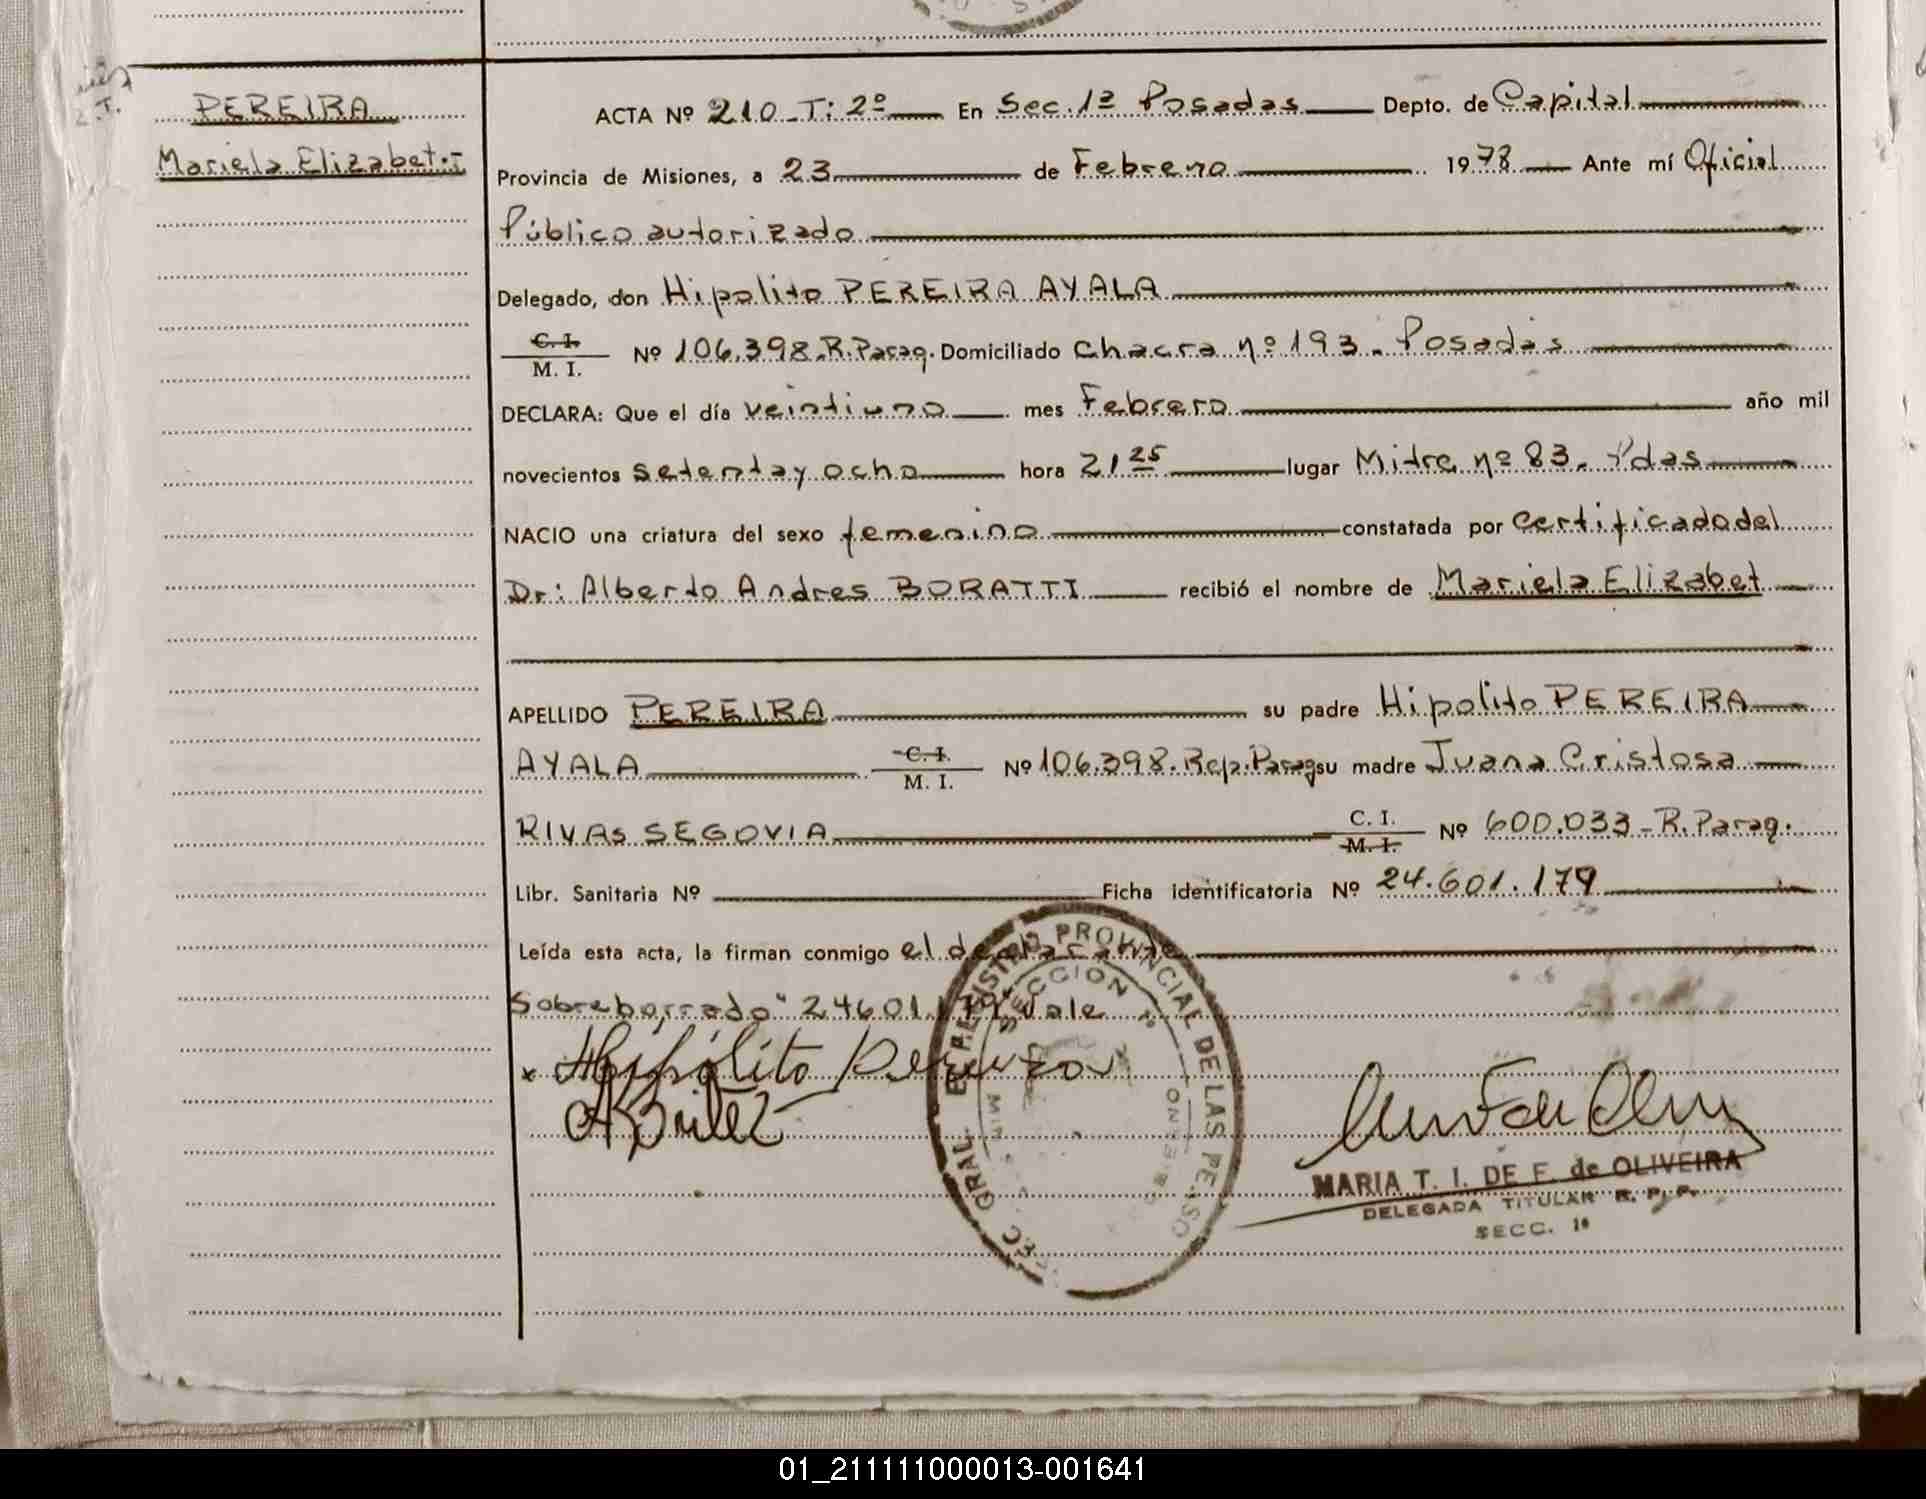 PEREIRA
Mariela Elizabet.-
ACTA Nº 210 T: 2º En Sec. 1ª Posadas Depto. de Capital
Provincia de Misiones, a 23 de Febrero 1978 Ante mí Oficial
Público autorizado
Delegado, don Hipolito PEREIRA AYALA
C. I.
M. I.
Nº 106.398.R.Parag. Domiciliado Chacra nº 193. Posadas
DECLARA: Que el día veintiuno mes Febrero año mil
novecientos setenta y ocho hora 21 25 lugar Mitre nº 83. Pdas
NACIO una criatura del sexo femenino constatada por certificado del
Dr: Alberto Andres BORATTI recibió el nombre de Mariela Elizabet
APELLIDO PEREIRA su padre Hipolito PEREIRA
AYALA C. I. M. I. Nº 106.398. Rep. Parag su madre Juana Cristosa
RIVAS SEGOVIA C. I. M. I. Nº 600.033 - R. Parag.
Libr. Sanitaria Nº Ficha identificatoria Nº 24.601.179
Leída esta acta, la firman conmigo el declarante
Sobreborrado "24601.179" Vale
x Hipólito Pereira
ABritez
REGISTRO PROVINCIAL DE LAS PERSO
SECCION 1ª
GRAL.
MARIA T. I. DE F. de OLIVEIRA
DELEGADA TITULAR R. P. P.
SECC. 1ª
01_211111000013-001641